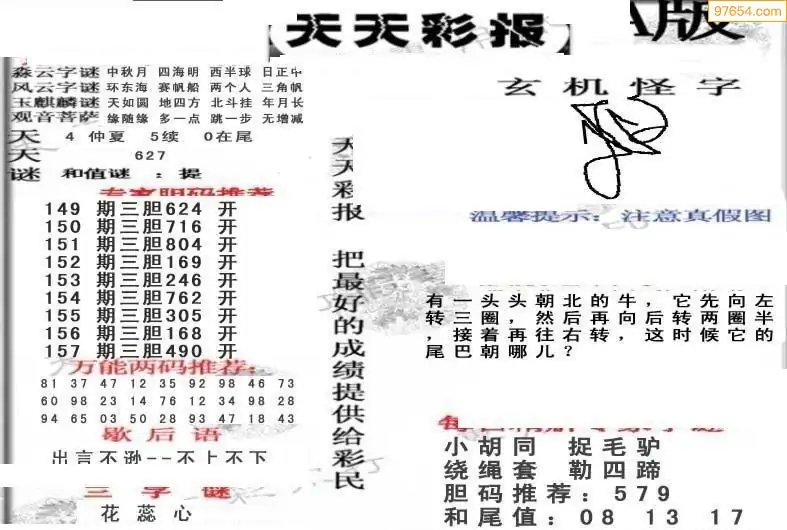 97654.com
天天彩报
A版
淼云字谜 中秋月 四海明 西半球 日正中
风云字谜 环东海 赛帆船 两个人 三角帆
玉麒麟谜 天如圆 地四方 北斗挂 年月长
观音菩萨 缘随缘 多一点 跳一步 无增减
天 4 仲夏 5续 0在尾
天 627
谜 和值谜 : 提
专家胆码推荐
149 期三胆624 开
150 期三胆716 开
151 期三胆804 开
152 期三胆169 开
153 期三胆246 开
154 期三胆762 开
155 期三胆305 开
156 期三胆168 开
157 期三胆490 开
万能两码推荐:
81 37 47 12 35 92 98 46 73
60 98 23 14 76 12 34 98 28
94 65 03 50 28 93 47 18 43
歇后语
出言不逊--不上不下
三字谜
花蕊心
天天彩报 把最好的成绩提供给彩民
玄机怪字
温馨提示: 注意真假图
有一头头朝北的牛，它先向左
转三圈，然后再向后转两圈半
，接着再往右转，这时候它的
尾巴朝哪儿？
小胡同 捉毛驴
绕绳套 勒四蹄
胆码推荐: 579
和尾值: 08 13 17